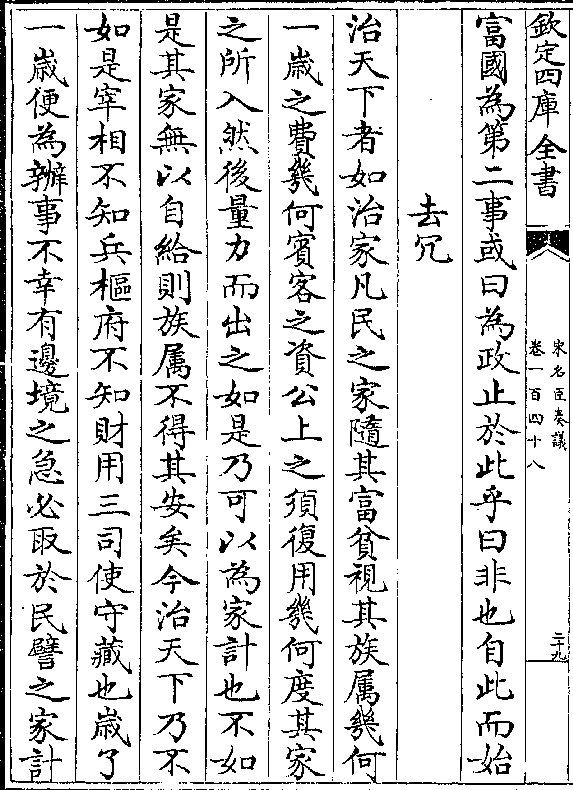 欽定四庫全書
宋名臣奏議
卷一百四十八
三十九
富國為第二事或曰為政止於此乎曰非也自此而始
去冗
治天下者如治家凡民之家隨其富貧視其族属幾何
一歳之費幾何賓客之資公上之須復用幾何度其家
之所入然後量力而出之如是乃可以為家計也不如
是其家無以自給則族属不得其安矣今治天下乃不
如是宰相不知兵樞府不知財用三司使守藏也歳了
一歳便為辦事不幸有邊境之急必取於民譬之家計